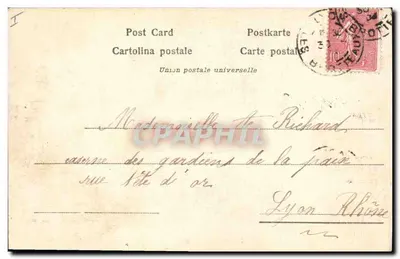 Post Card Postkarte
Cartolina postale Carte postale
Union postale universelle
CPAPHIL.COM
Mademoiselle Richard
caserne des gardiens de la paix
rue Tête d'or
Lyon Rhône